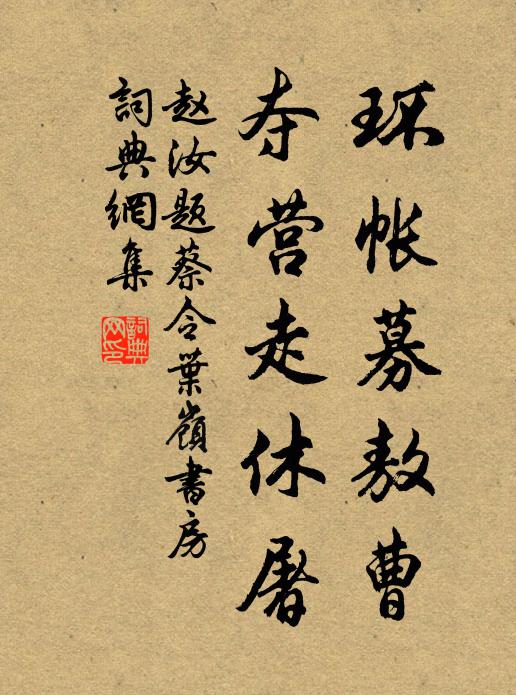 环帐募敖曹
夺营走休屠
赵汝题蔡令葉嶺書房
詞典網集
詞典网印